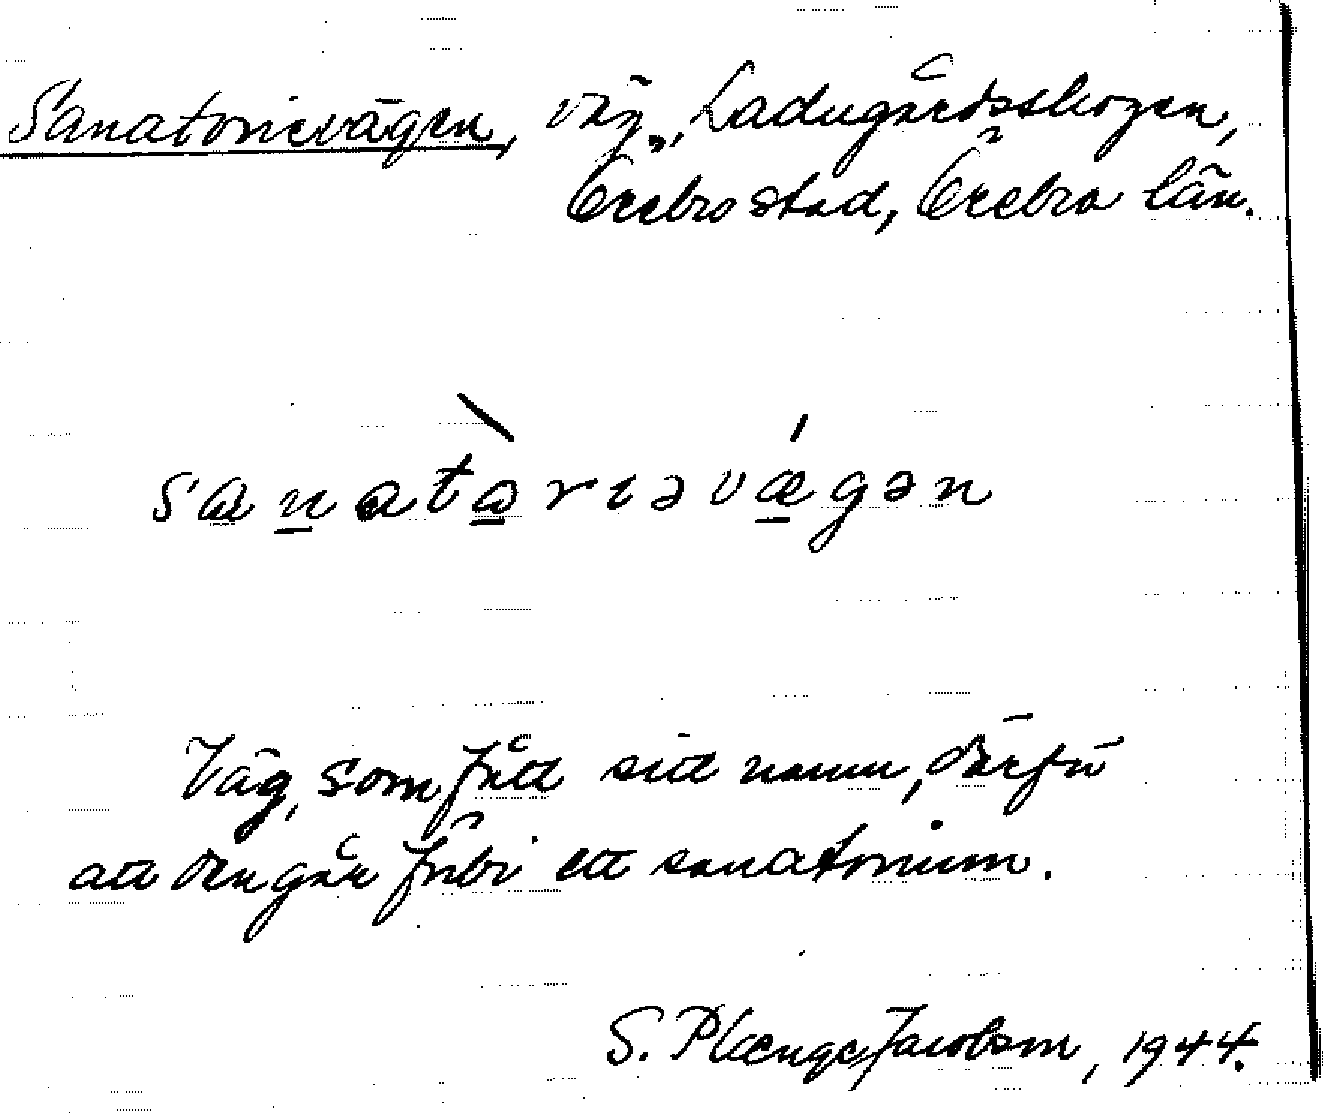 Sanatorievägen, väg, Ladugårdsskogen,
Örebro stad, Örebro län.
sanatòriəvǽgən
Väg, som fått sitt namn, därför
att den går förbi ett sanatorium.
S. Plænge Jacobson, 1944.